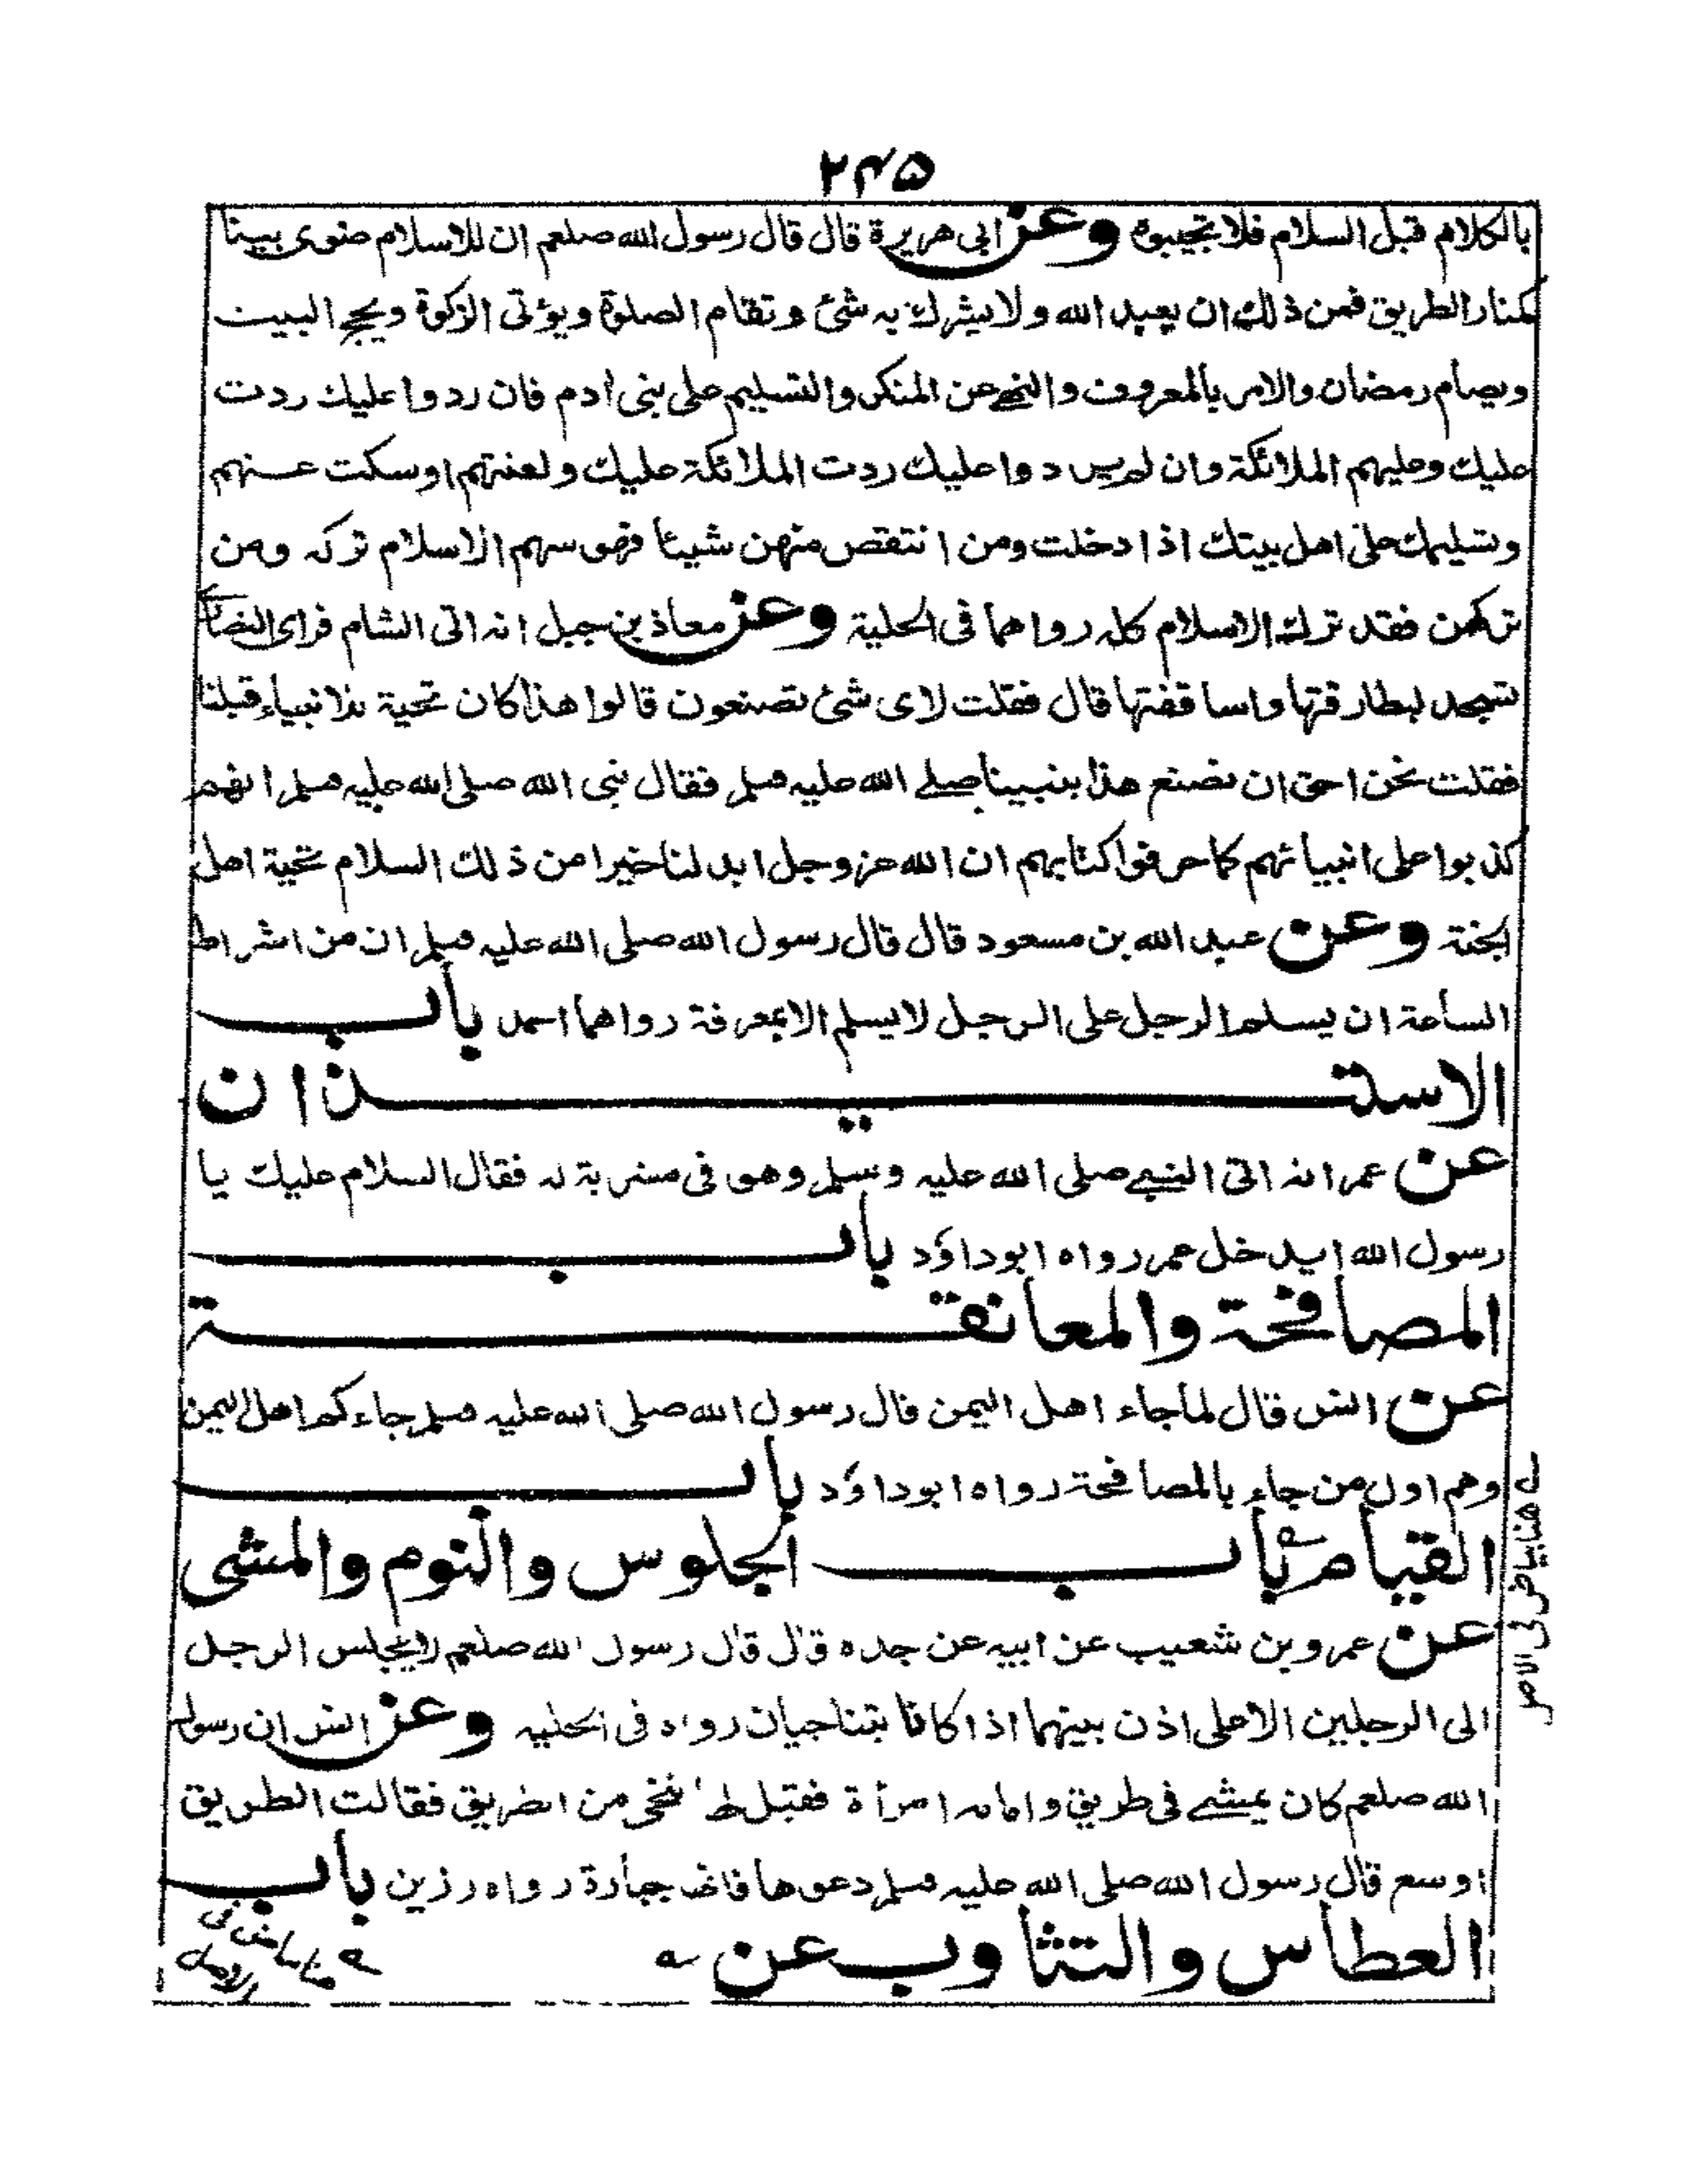 ۲۴۵
بالكلام قبل السلام فلا تجيبوه وعن ابى هريرة قال قال رسول الله صلعم ان للاسلام ضوى بينا
كمنار الطريق فمن ذلك ان يعبد الله ولا يشرك به شئ وتقام الصلوة ويؤتى الزكوة ويحج البيت
ويصام رمضان والامر بالمعروف والنهي عن المنكر والتسليم على بنى ادم فان ردوا عليك ردت
عليك وعليهم الملائكة وان لم يردوا عليك ردت الملائكة عليك ولعنتهم اوسكت عنهم
وتسليمك على اهل بيتك اذا دخلت ومن انتقص منهن شيئا فهو سهم الاسلام تركه ومن
تركهن فقد ترك الاسلام كله رواهما فى الحلية وعن معاذ بن جبل انه اتى الشام فراى النصارى
تسجد لبطارقتها واساقفتها قال فقلت لاى شئ تصنعون قالوا هذا كان تحية للانبياء قبلنا
فقلت نحن احق ان نصنع هذا بنبينا صلى الله عليه وسلم فقال نبى الله صلى الله عليه وسلم انهم
كذبوا على انبيائهم كما حرفوا كتابهم ان الله عز وجل ابدلنا خيرا من ذلك السلام تحية اهل
الجنة وعن عبد الله بن مسعود قال قال رسول الله صلى الله عليه وسلم ان من اشراط
الساعة ان يسلم الرجل على الرجل لا يسلم الا بمعرفة رواهما احمد باب
الاستيذان
عن عمر انه اتى النبي صلى الله عليه وسلم وهو فى مشربة له فقال السلام عليك يا
رسول الله ايدخل عمر رواه ابوداؤد باب
المصافحة والمعانقة
عن انس قال لما جاء اهل اليمن قال رسول الله صلى الله عليه وسلم جاءكم اهل اليمن
وهم اول من جاء بالمصافحة رواه ابوداؤد باب
القيام باب الجلوس والنوم والمشى
عن عمرو بن شعيب عن ابيه عن جده قال قال رسول الله صلعم لا يجلس الرجل
الى الرجلين الا على اذن بينهما اذا كانا يتناجيان رواه فى الحليه وعن انس ان رسول
الله صلعم كان يمشي فى طريق وامامه امرأة فقيل لها تنحى من الطريق فقالت الطريق
اوسع قال رسول الله صلى الله عليه وسلم دعوها فانها جبارة رواه رزين باب
العطاس والتثاوب عن
هنا بياض فى الاصل
هنا بياض فى الاصل